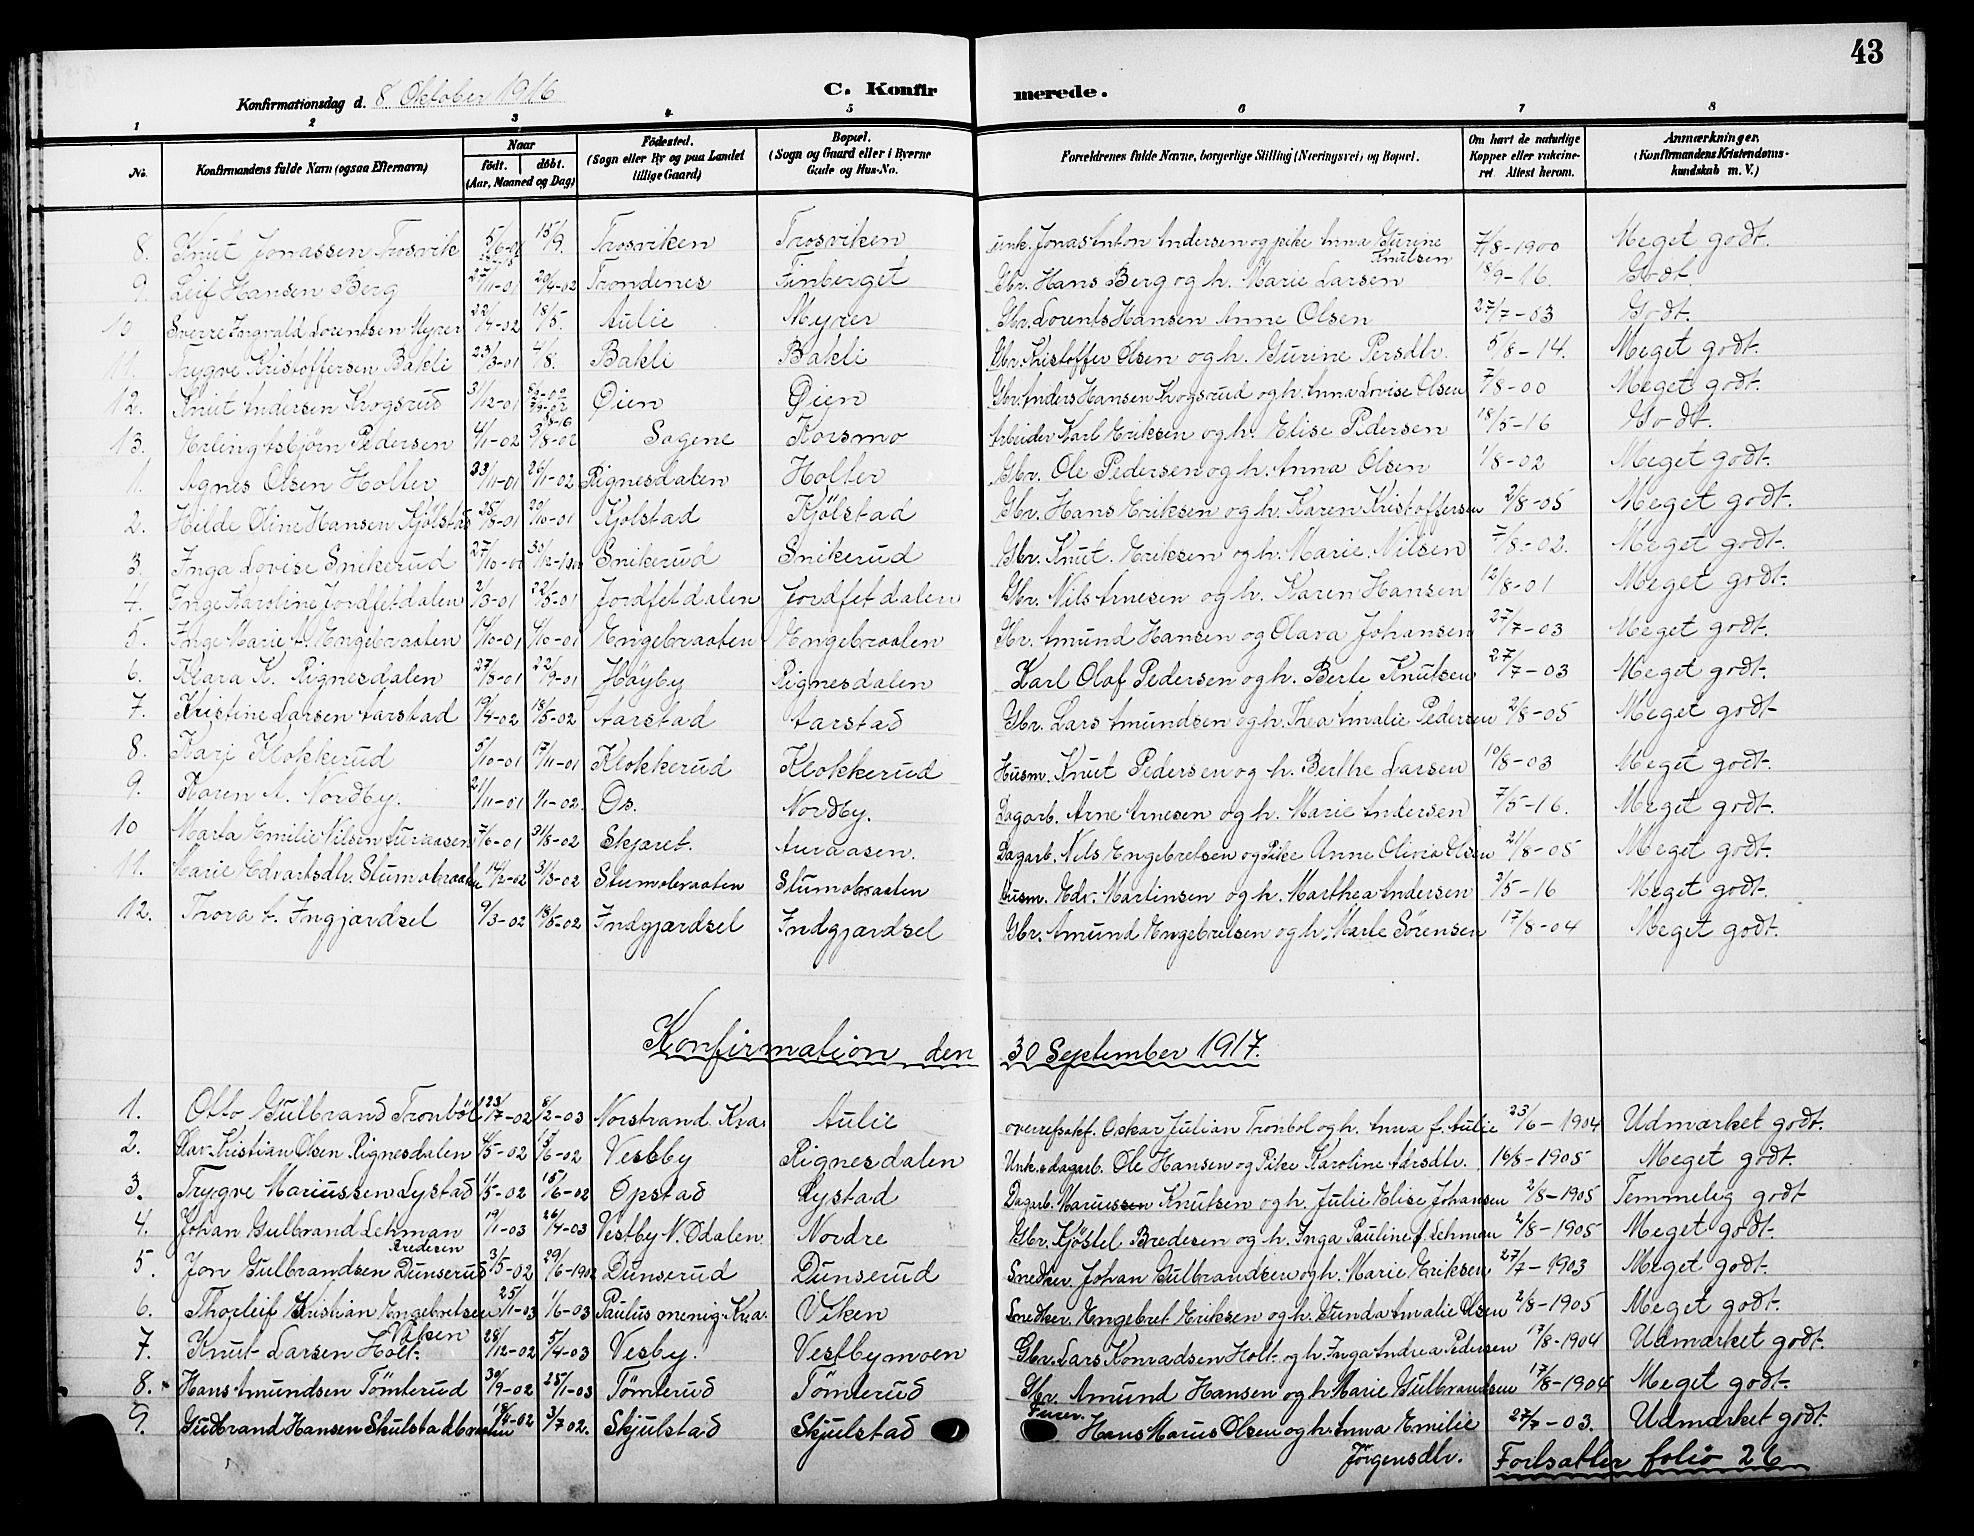 43
Konfirmationsdag d. 8 Oktober 1916 C. Konfirmerede.
1 2 3 4 5 6 7 8
No. Konfirmandens fulde Navn (ogsaa Efternavn) Naar födt. döbt. (Aar, Maaned og Dag) Födested. (Sogn eller By og paa Landet tillige Gaard) Bopæl. (Sogn og Gaard eller i Byerne Gade og Hus-No. Forældrenes fulde Navne, borgerlige Stilling (Næringsvei) og Bopæl. Om havt de naturlige Kopper eller vakcineret Attest herom. Anmærkninger, (Konfirmandens Kristendomskundskab m. V.)
8. Knut Jonassen Trosvik 5/6-01 15/9. Trosviken Trosviken unk. Jonas Anton Andersen og pike Anna Gurine Knutsen 7/8-1900 Meget godt.
9. Leif Hansen Berg 27/11-01 20/4-02 Trondenes Finberget Gbr. Hans Berg og h. Marie Larsen 18/9-16. Godt.
10 Sverre Ingvald Lorentsen Myrer 22/4-02 18/5. Aulie Myrer Gbr. Lorents Hansen Anne Olsen 27/7-03 Godt.
11. Trygve Kristoffersen Bakli 23/3-01 4/8. Bakli Bakli Gbr. Kristoffer Olsen og h. Gurine Persdtr. 5/8-14. Meget godt.
12. Knut Andersen Krogsrud 31/12-01 Öien Öien Gbr. Anders Hansen Krogsrud og h. Anna Lovise Olsen 7/8-00 Meget godt.
13. Erling Asbjørn Pedersen 4/1-02 3/8-02 Sagene Korsmo Arbeider Karl Eriksen og h. Elise Pedersen 18/5-16 Godt.
1. Agnes Olsen Holter 23/11-01 26/11-02 Rignesdalen Holter Gbr. Ole Pedersen og h. Anna Olsen 1/8-02 Meget godt.
2. Hilde Oline Hansen Kjölstad 28/8-01 20/10-01 Kjolstad Kjölstad Gbr. Hans Eriksen og h. Karen Kristoffersen 2/8-05 Meget godt.
3. Inga Lovise Snikerud 27/10-01 Snikerud Snikerud Gbr. Knut Eriksen og h. Marie Nilsen 7/8-02. Meget godt.
4. Inge Karoline Jordfetdalen 2/3-01 22/5-01 Jordfetdalen Jordfetdalen Gbr. Nils Arnesen og h. Karen Hansen 12/8-01 Meget godt.
5. Inge Marie A. Engebraaten Engebraaten Engebraaten Gbr. Amund Hansen og Olara Johansen 27/7-03 Meget godt.
6. Klara K. Rignesdalen 27/8-01 22/9-01 Höyby Rignesdalen Karl Olaf Pedersen og h. Berte Knutsen 27/7-03 Meget godt.
7. Kristine Larsen Aarstad 19/4-02 18/5-02 Aarstad Aarstad Gbr. Lars Amundsen og h. Thea Amalie Pedersen 2/8-05 Meget godt.
8. Kari Klokkerud 5/10-01 17/11-01 Klokkerud Klokkerud Husm. Knut Pedersen og h. Berthe Larsen 10/8-03 Meget godt.
9. Karen A. Nordby. 21/11-01 1/1-02. Os. Nordby. Dagarb. Arne Arnesen og h. Marie Andersen 7/5-16. Meget godt.
10 Marta Emilie Nilsen Auraasen 7/6-01 31/8-02 Skjaret. Auraasen. Dagarb. Nils Engebretsen og Pike Anne Olivia Olsen 21/8-05 Meget godt.
11. Marie Edvartsdtr. Stumobraaten 14/2-02 31/3-02 Stumobraaten Stumobraaten Husm. Edv. Martinsen og h. Marthea Andersen 3/5-16 Meget godt.
12. Thora A. Ingjardsel 9/3-02 18/5-02 Indgjardsel Indgjardsel Gbr. Amund Engebretsen og h. Marte Sörensen 17/8-04 Meget godt.
Konfirmation den 30 September 1917.
1. Otto Gulbrand Tronböl 23/7-02 8/2-03 Norstrand Kra. Aulie overrefsakf. Oskar Julian Tronbol og h. Anna f. Aulie 23/6-1904 Udmærket godt.
2. Kristian Olsen Rignesdalen Vestby Rignesdalen Unk. dagarb. Ole Hansen og Pike Karoline Aarsdtr. 16/8-1905 Meget godt.
3. Trygve Mariussen Lystad 1/5-02 15/6-02 Opstad Lystad Dagarb. Mariussen Knutsen og h. Julie Elise Johansen 2/8-1905 Temmelig godt
4. Johan Gulbrand Lehman Bredesen 19/1-03 26/4-03 Vestby N. Odalen Nordre Gbr. Kjöstel Bredesen og h. Inga Pauline f. Lehman 2/8-1905 Meget godt.
5. Jon Gulbrandsen Dunserud 3/5-02 29/6-1902 Dunserud Dunserud Snedker Johan Gulbrandsen og h. Marie Eriksen 27/7-1903 Meget godt.
6. Thorleif Kristian Engebretsen Viken 25/1-03 1/6-03 Paulus menig. Kra. Viken Snedker. Engebret Eriksen og h. Gunda Amalie Olsen 2/8-1905 Meget godt.
7. Knut Larsen Holt. 28/12-02 5/4-03 Vesby. Vestbymoen Gbr. Lars Konradsen Holt og h. Inga Andrea Pedersen 17/8-1904 Udmærket godt.
8. Hans Amundsen Tömterud 30/9-02 25/1-03 Tömterud Tömterud Gbr. Amund Hansen og h. Marie Gulbrandsen 17/8-1904 Meget godt.
9. Gudbrand Hansen Skulstadbraaten 3/7-02. Skjulstad Skjulstad Hans Marius Olsen og h. Anna Emilie Jörgensdtr. 27/7-03. Udmærket godt.
Fortsætter folio 26